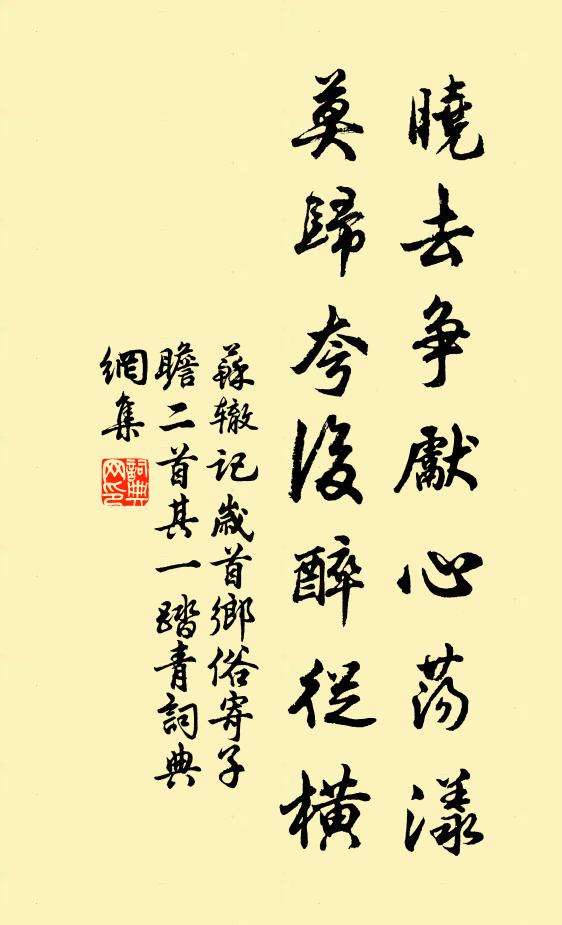 曉去争獻心蕩漾
莫歸夸後醉從橫
蘇辙記歲首鄉俗寄子
瞻二首其一踏青詞典
網集
詞典
网印